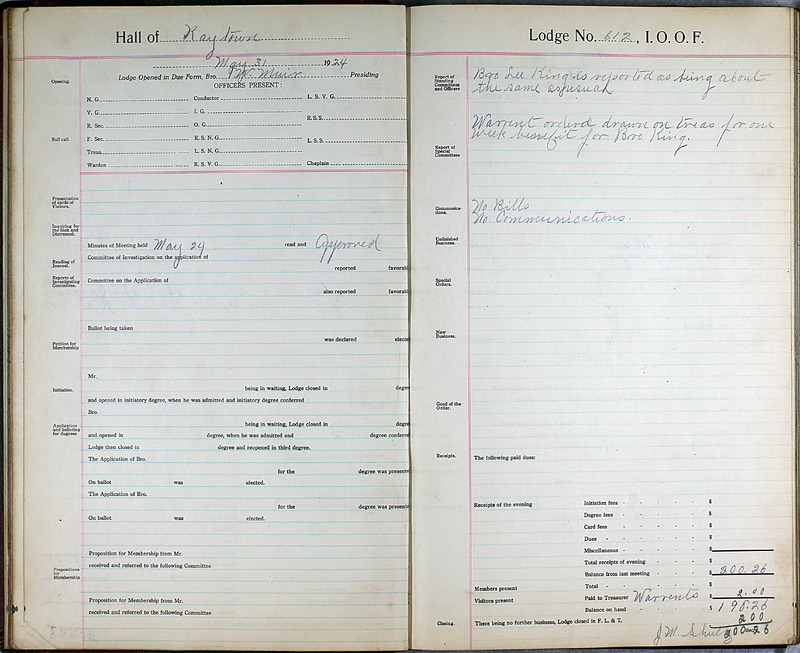 Hall of Kaytown
May 31 1924
Opening.
Lodge Opened in Due Form, Bro. W. Muir Presiding
OFFICERS PRESENT:
N. G. Conductor L. S. V. G.
V. G. I. G.
R. S. S.
R. Sec. O. G.
Roll call.
F. Sec. R. S. N. G.
L. S. S.
Treas. L. S. N. G.
Warden R. S. V. G. Chaplain
Presentation
of cards of
Visitors.
Inquiring for
the Sick and
Distressed.
Minutes of Meeting held May 24 read and Approved
Reading of
Journal.
Committee of Investigation on the application of
reported favorabl
Reports of
Investigating
Committee.
Committee on the Application of
also reported favorabl
Ballot being taken
was declared electe
Petition for
Membership
Mr.
Initiation.
being in waiting, Lodge closed in degre
and opened in initiatory degree, when he was admitted and initiatory degree conferred
Bro.
Application
and balloting
for degrees
being in waiting, Lodge closed in degre
and opened in degree, when he was admitted and degree conferre
Lodge then closed in degree and reopened in third degree.
The Application of Bro.
for the degree was presente
On ballot was elected.
The Application of Bro.
for the degree was presente
On ballot was elected.
Proposition for Membership from Mr.
Propositions
for
Membership
received and referred to the following Committee
Proposition for Membership from Mr.
received and referred to the following Committee
Lodge No. 612, I. O. O. F.
Report of
Standing
Committees
and Officers
Bro Lee King is reported as being about
the same as usual
Warrent orderd drawn on treas for one
week benefit for Bro King.
Report of
Special
Committees
Communica-
tions.
No Bills
No Communications.
Unfinished
Business.
Special
Orders.
New
Business.
Good of the
Order.
Receipts.
The following paid dues:
Receipts of the evening
Initiation fees $
Degree fees $
Card fees $
Dues $
Miscellaneous $
Total receipts of evening $
Balance from last meeting $ 200.26
Members present
Total $
Visitors present
Paid to Treasurer Warrents $ 2.00
Balance on hand $ 198.26
Closing.
There being no further business, Lodge closed in F. L. & T.
2 00
J M